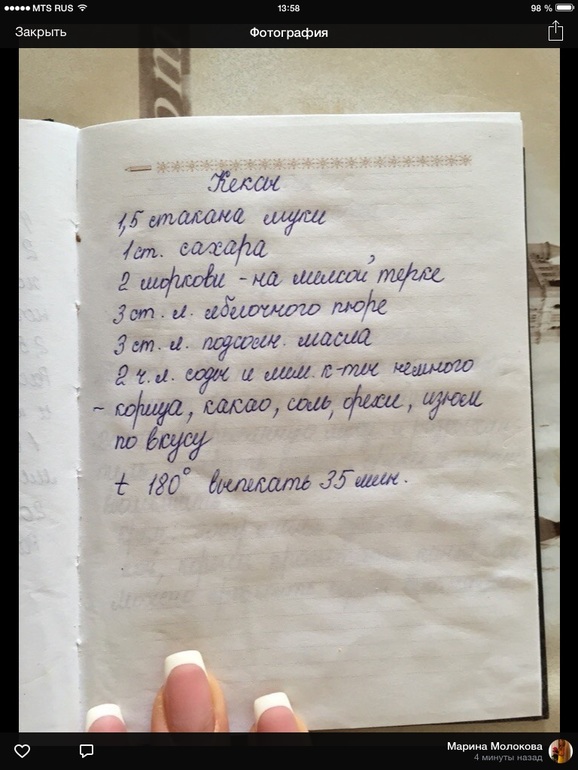 MTS RUS
13:58
98 %
Закрыть
Фотография
Кексы
1,5 стакана муки
1 ст. сахара
2 моркови - на мелкой терке
3 ст. л. яблочного пюре
3 ст. л. подсолн. масла
2 ч. л. соды и лим. к-ты немного
- корица, какао, соль, орехи, изюм
по вкусу
t 180° выпекать 35 мин.
Марина Молокова
4 минуты назад